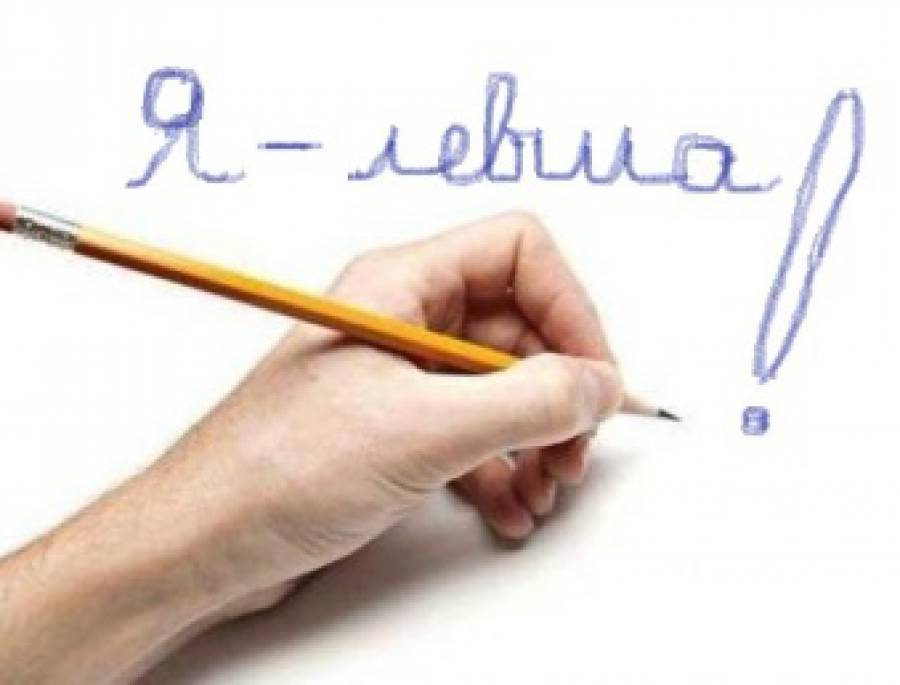 Я - левша!